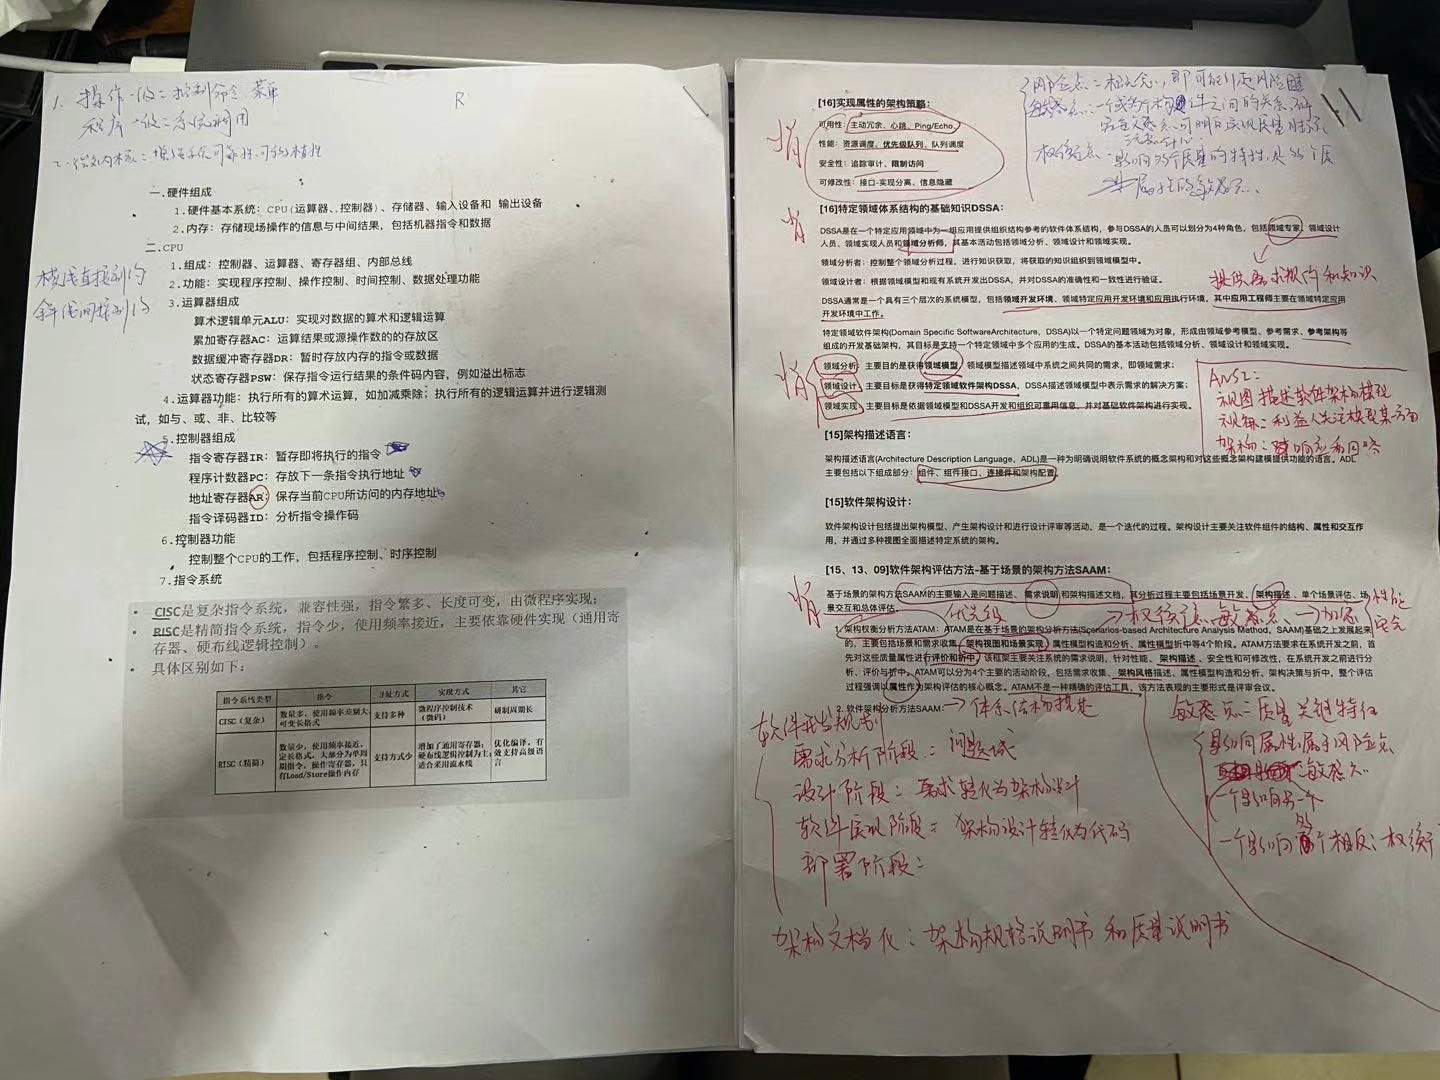 1. 操作一级:控制命令 菜单
R
程序一级:系统调用
2. 微内核:增强系统可靠性,可移植性
一.硬件组成
1.硬件基本系统:CPU(运算器、控制器)、存储器、输入设备和 输出设备
2.内存:存储现场操作的信息与中间结果,包括机器指令和数据
二.CPU
1.组成:控制器、运算器、寄存器组、内部总线
2.功能:实现程序控制、操作控制、时间控制、数据处理功能
3.运算器组成
算术逻辑单元ALU:实现对数据的算术和逻辑运算
累加寄存器AC:运算结果或源操作数的的存放区
数据缓冲寄存器DR:暂时存放内存的指令或数据
状态寄存器PSW:保存指令运行结果的条件码内容,例如溢出标志
4.运算器功能:执行所有的算术运算,如加减乘除;执行所有的逻辑运算并进行逻辑测
试,如与、或、非、比较等
5.控制器组成
指令寄存器IR:暂存即将执行的指令
程序计数器PC:存放下一条指令执行地址
地址寄存器AR:保存当前CPU所访问的内存地址
指令译码器ID:分析指令操作码
6.控制器功能
控制整个CPU的工作,包括程序控制、时序控制
7.指令系统
• CISC是复杂指令系统,兼容性强,指令繁多、长度可变,由微程序实现;
• RISC是精简指令系统,指令少,使用频率接近,主要依靠硬件实现(通用寄
存器、硬布线逻辑控制)。
• 具体区别如下:
指令系统类型 指令 寻址方式 实现方式 其它
CISC(复杂) 数量多,使用频率差别大,可变长格式 支持多种 微程序控制技术(微码) 研制周期长
RISC(精简) 数量少,使用频率接近,定长格式,大部分为单周期指令,操作寄存器,只有Load/Store操作内存 支持方式少 增加了通用寄存器;硬布线逻辑控制为主;适合采用流水线 优化编译,有效支持高级语言
[16]实现属性的架构策略:
可用性:主动冗余、心跳、Ping/Echo、
性能:资源调度、优先级队列、队列调度
安全性:追踪审计、限制访问
可修改性:接口-实现分离、信息隐藏
[16]特定领域体系结构的基础知识DSSA:
DSSA是在一个特定应用领域中为一组应用提供组织结构参考的软件体系结构,参与DSSA的人员可以划分为4种角色,包括领域专家、领域设计
人员、领域实现人员和领域分析师,其基本活动包括领域分析、领域设计和领域实现。
领域分析者:控制整个领域分析过程,进行知识获取,将获取的知识组织到领域模型中。
领域设计者:根据领域模型和现有系统开发出DSSA,并对DSSA的准确性和一致性进行验证。
提供需求规约和知识
DSSA通常是一个具有三个层次的系统模型,包括领域开发环境、领域特定应用开发环境和应用执行环境,其中应用工程师主要在领域特定应用
开发环境中工作。
特定领域软件架构(Domain Specific SoftwareArchitecture,DSSA)以一个特定问题领域为对象,形成由领域参考模型、参考需求、参考架构等
组成的开发基础架构,其目标是支持一个特定领域中多个应用的生成。DSSA的基本活动包括领域分析、领域设计和领域实现。
领域分析:主要目的是获得领域模型,领域模型描述领域中系统之间共同的需求,即领域需求;
领域设计:主要目标是获得特定领域软件架构DSSA,DSSA描述领域模型中表示需求的解决方案;
领域实现:主要目标是依据领域模型和DSSA开发和组织可重用信息,并对基础软件架构进行实现。
视图描述软件架构模型
[15]架构描述语言:
架构描述语言(Architecture Description Language,ADL)是一种为明确说明软件系统的概念架构和对这些概念架构建模提供功能的语言。ADL
主要包括以下组成部分:组件、组件接口、连接件和架构配置。
[15]软件架构设计:
软件架构设计包括提出架构模型、产生架构设计和进行设计评审等活动,是一个迭代的过程。架构设计主要关注软件组件的结构、属性和交互作
用,并通过多种视图全面描述特定系统的架构。
[15、13、09]软件架构评估方法-基于场景的架构方法SAAM:
基于场景的架构方法SAAM的主要输入是问题描述、需求说明和架构描述文档,其分析过程主要包括场景开发、架构描述、单个场景评估、场
景交互和总体评估。
优先级
→权衡点、敏感点
架构权衡分析方法ATAM:ATAM是在基于场景的架构分析方法(Scenarios-based Architecture Analysis Method,SAAM)基础之上发展起来
的,主要包括场景和需求收集、架构视图和场景实现、属性模型构造和分析、属性模型折中等4个阶段。ATAM方法要求在系统开发之前,首
先对这些质量属性进行评价和折中。该框架主要关注系统的需求说明,针对性能、架构描述、安全性和可修改性,在系统开发之前进行分
析、评价与折中。ATAM可以分为4个主要的活动阶段,包括需求收集、架构风格描述、属性模型构造和分析、架构决策与折中,整个评估
过程强调以属性作为架构评估的核心概念。ATAM不是一种精确的评估工具,该方法表现的主要形式是评审会议。
2. 软件架构分析方法SAAM:
需求分析阶段:问题域
设计阶段:需求转化为架构设计
软件实现阶段:架构设计转化为代码
部署阶段:
架构文档化:架构规格说明书和质量说明书
敏感点:质量关键特征
影响属性属于风险点
敏感点
一个影响另一个